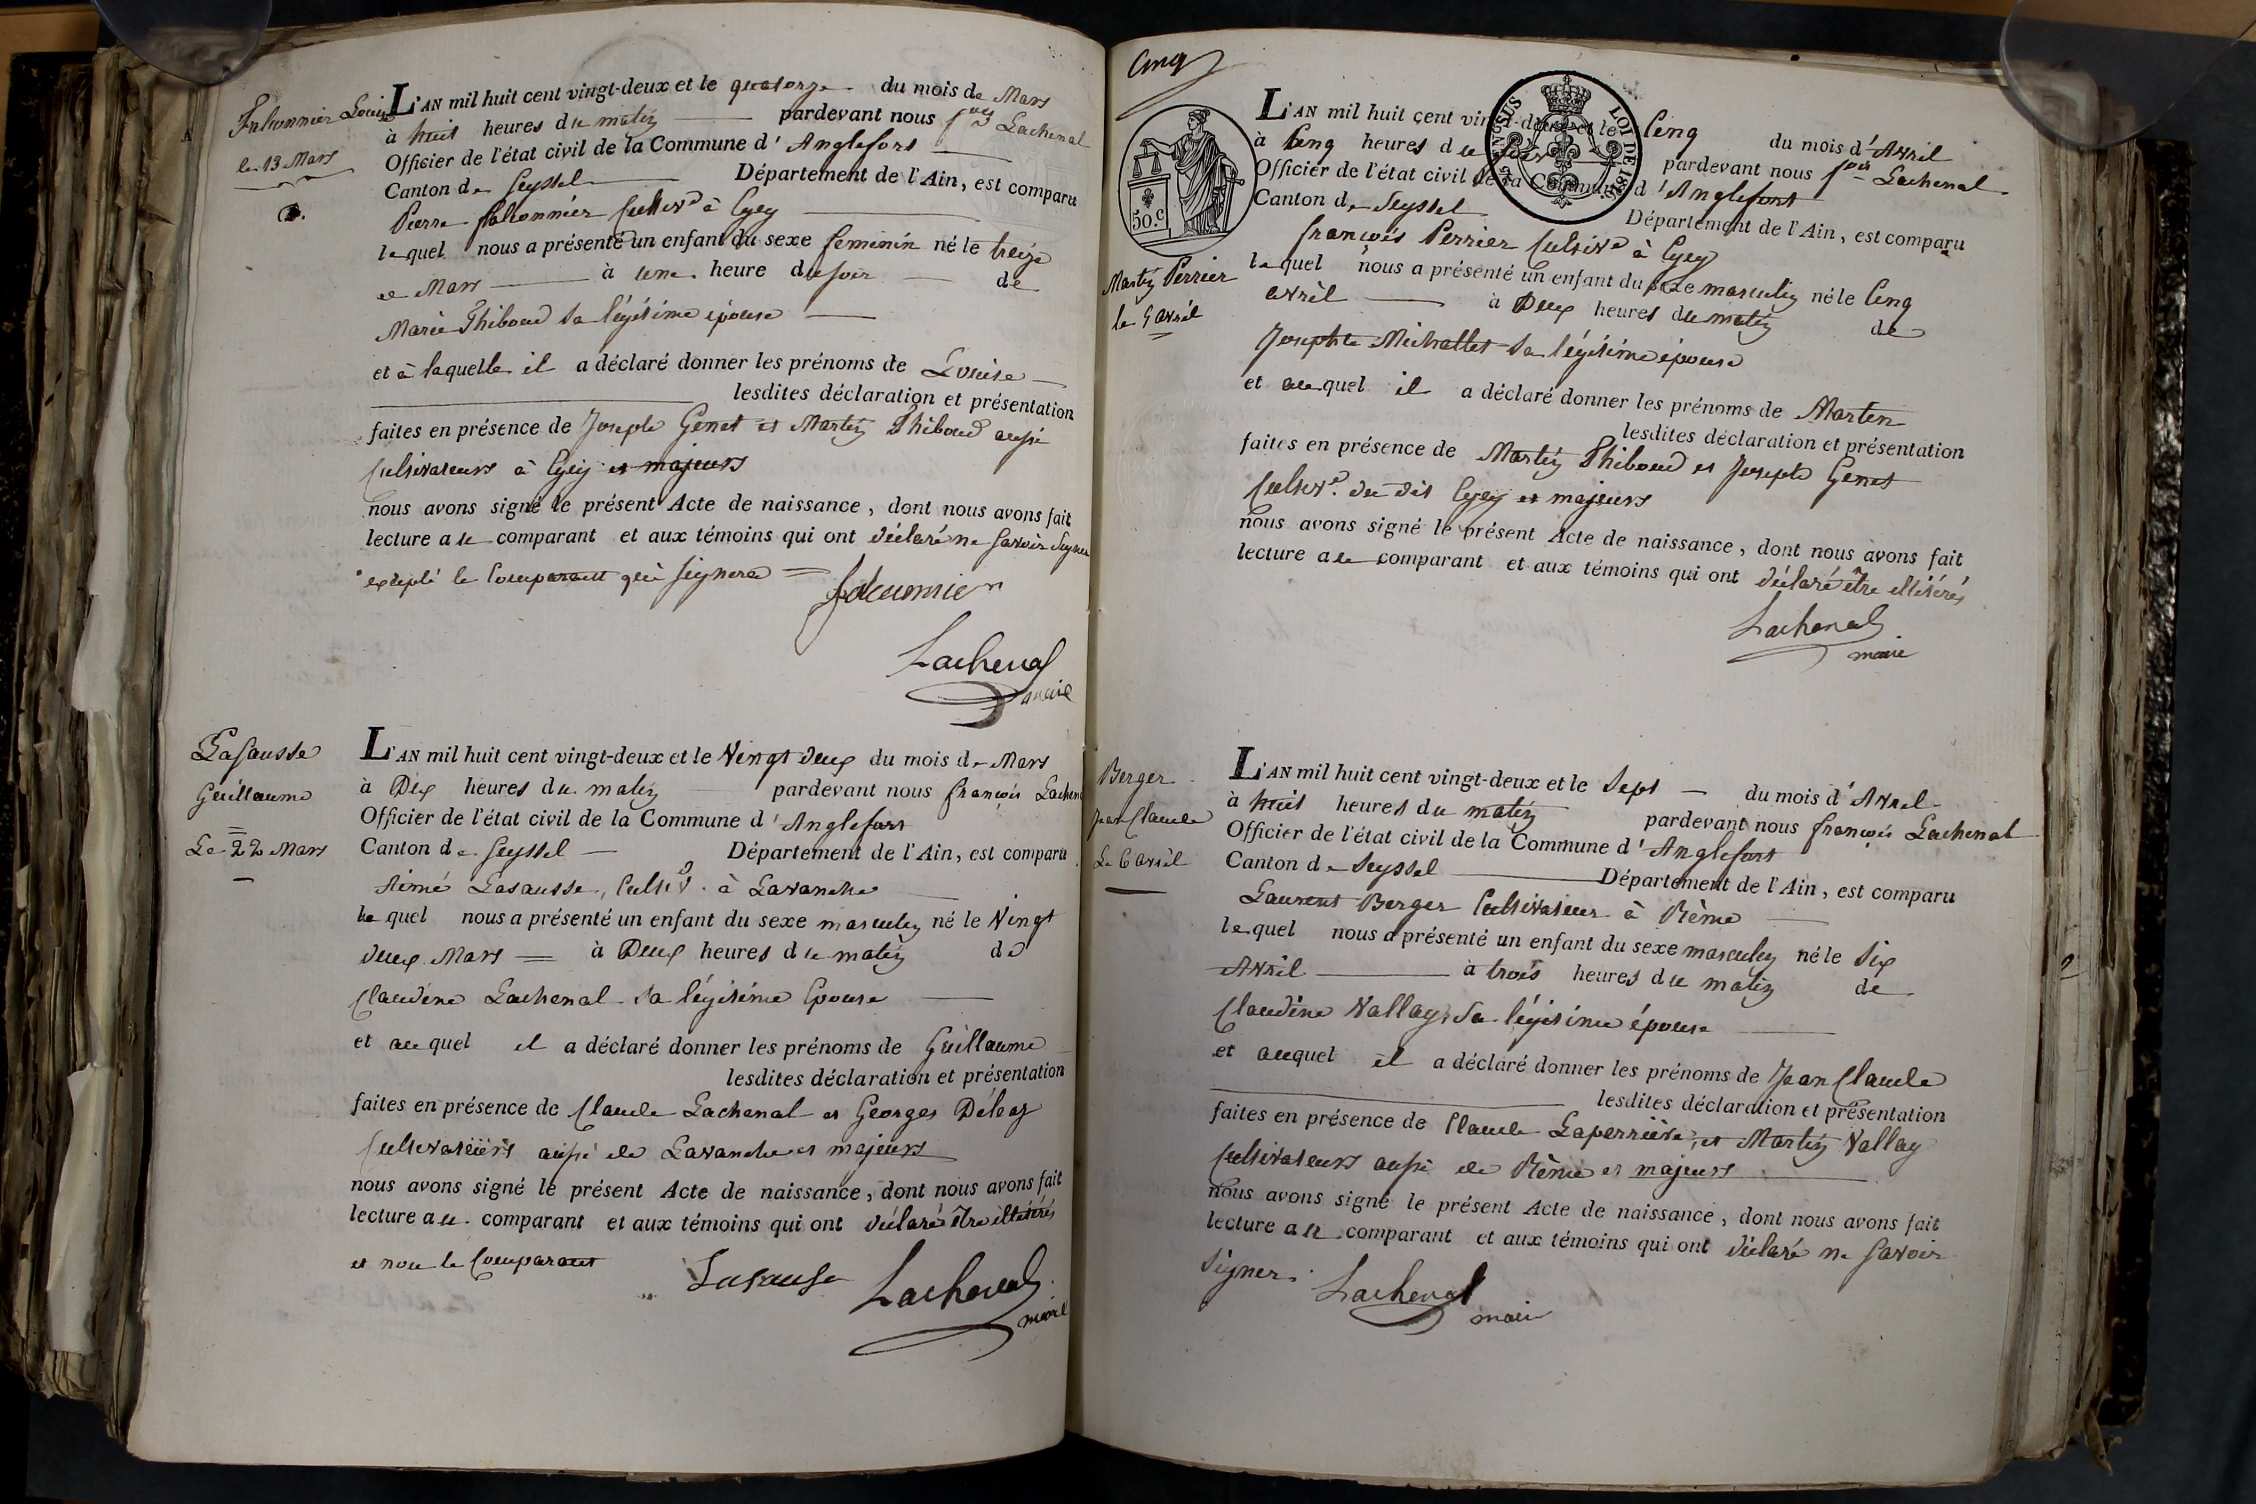 Falconnier Louise
le 13 Mars
L'AN mil huit cent vingt-deux et le quatorze du mois de Mars
à huit heures du matin pardevant nous f.ois Lachenal
Officier de l'état civil de la Commune d'Anglefort
Canton de Seyssel Département de l'Ain, est comparu
Pierre falconnier Cultiv.r à Eyey
lequel nous a présenté un enfant du sexe feminin né le treize
de Mars à une heure du soir de
Marie Thiboud Sa légitime épouse
et à laquelle il a déclaré donner les prénoms de Louise
lesdites déclaration et présentation
faites en présence de Joseph Genet et Martin Thiboud aussi
Cultivateurs à Eyey et majeurs
nous avons signé le présent Acte de naissance, dont nous avons fait
lecture au comparant et aux témoins qui ont déclaré ne Savoir Signer
excepté le Comparant qui Signera
falconnier
Lachenal
maire
LaSausse
Guillaume
Le 22 Mars
L'AN mil huit cent vingt-deux et le Vingt deux du mois de Mars
à Dix heures du matin pardevant nous françois Lachenal
Officier de l'état civil de la Commune d'Anglefort
Canton de Seyssel Département de l'Ain, est comparu
Aimé Lasausse, Cultiv.r à Lavanche
lequel nous a présenté un enfant du sexe masculin né le Vingt
deux Mars à Deux heures du matin de
Claudine Lachenal Sa légitime Epouse
et auquel il a déclaré donner les prénoms de Guillaume
lesdites déclaration et présentation
faites en présence de Claude Lachenal et Georges Déléaz
Cultivateurs aussi de Lavanche et majeurs
nous avons signé le présent Acte de naissance, dont nous avons fait
lecture au comparant et aux témoins qui ont déclaré être illitérés
et non le Comparant
Lasausse
Lachenal
maire
Cinq
50.C
TIMB. SUS LOI DE 1816
Martin Perrier
le 5 avril
L'AN mil huit cent vingt-deux et le Cinq du mois d'Avril
à Cinq heures du Soir pardevant nous f.ois Lachenal
Officier de l'état civil de la Commune d'Anglefort
Canton de Seyssel Département de l'Ain, est comparu
françois Perrier Cultiv.r à Eyey
lequel nous a présenté un enfant du sexe masculin né le Cinq
avril à Deux heures du matin de
Josephte Michallet Sa légitime épouse
et auquel il a déclaré donner les prénoms de Martin
lesdites déclaration et présentation
faites en présence de Martin Thiboud et Joseph Genet
Cultiv.rs du dit Eyey et majeurs
nous avons signé le présent Acte de naissance, dont nous avons fait
lecture au comparant et aux témoins qui ont déclaré être illitérés
Lachenal
maire
Berger
Jean Claude
Le 6 avril
L'AN mil huit cent vingt-deux et le Sept du mois d'Avril
à huit heures du matin pardevant nous françois Lachenal
Officier de l'état civil de la Commune d'Anglefort
Canton de Seyssel Département de l'Ain, est comparu
Laurent Berger Cultivateur à Rême
lequel nous a présenté un enfant du sexe masculin né le Six
Avril à trois heures du matin de
Claudine Vallay, Sa légitime épouse
et auquel il a déclaré donner les prénoms de Jean Claude
lesdites déclaration et présentation
faites en présence de Claude Laperrière, et Martin Vallay
Cultivateurs aussi de Rême et majeurs
nous avons signé le présent Acte de naissance, dont nous avons fait
lecture au comparant et aux témoins qui ont déclaré ne Savoir
Signer.
Lachenal
maire